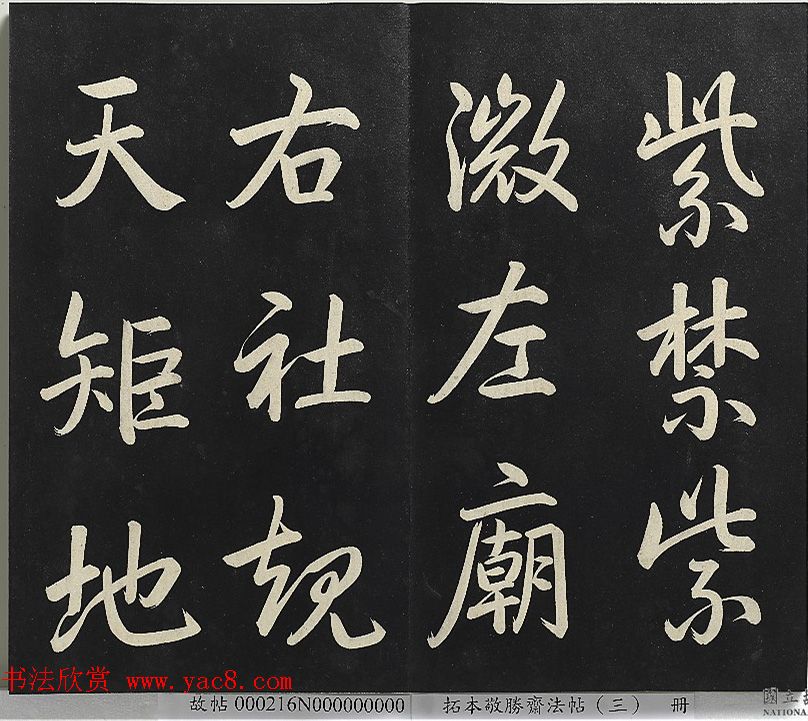 紫禁紫
微左廟
右社規
天矩地
书法欣赏 www.yac8.com
故帖 000216N000000000
拓本敬勝齋法帖（三） 册
國立
NATIONA